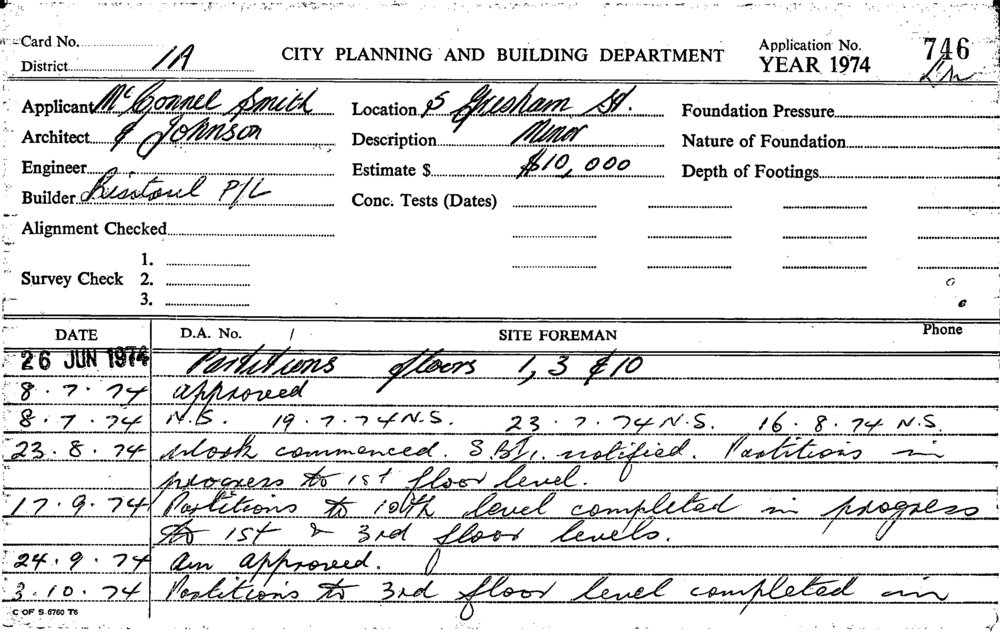 Card No.
District 1A
CITY PLANNING AND BUILDING DEPARTMENT
Application No. 746
YEAR 1974
Applicant McConnel Smith
Architect & Johnson
Engineer
Builder P/L
Alignment Checked
Survey Check 1.
2.
3.
Location 5 Gresham St.
Description Minor
Estimate $ $10,000
Conc. Tests (Dates)
Foundation Pressure
Nature of Foundation
Depth of Footings
DATE D.A. No. / SITE FOREMAN Phone
26 JUN 1974 Partitions floors 1, 3 & 10
8.7.74 approved
8.7.74 N.S. 19.7.74 N.S. 23.7.74 N.S. 16.8.74 N.S.
23.8.74 Work commenced. notified. Partitions in
progress to 1st floor level.
17.9.74 Partitions to 10th level completed in progress
to 1st & 3rd floor levels.
24.9.74 Am approved.
3.10.74 Partitions to 3rd floor level completed am
C OF S 5760 T6